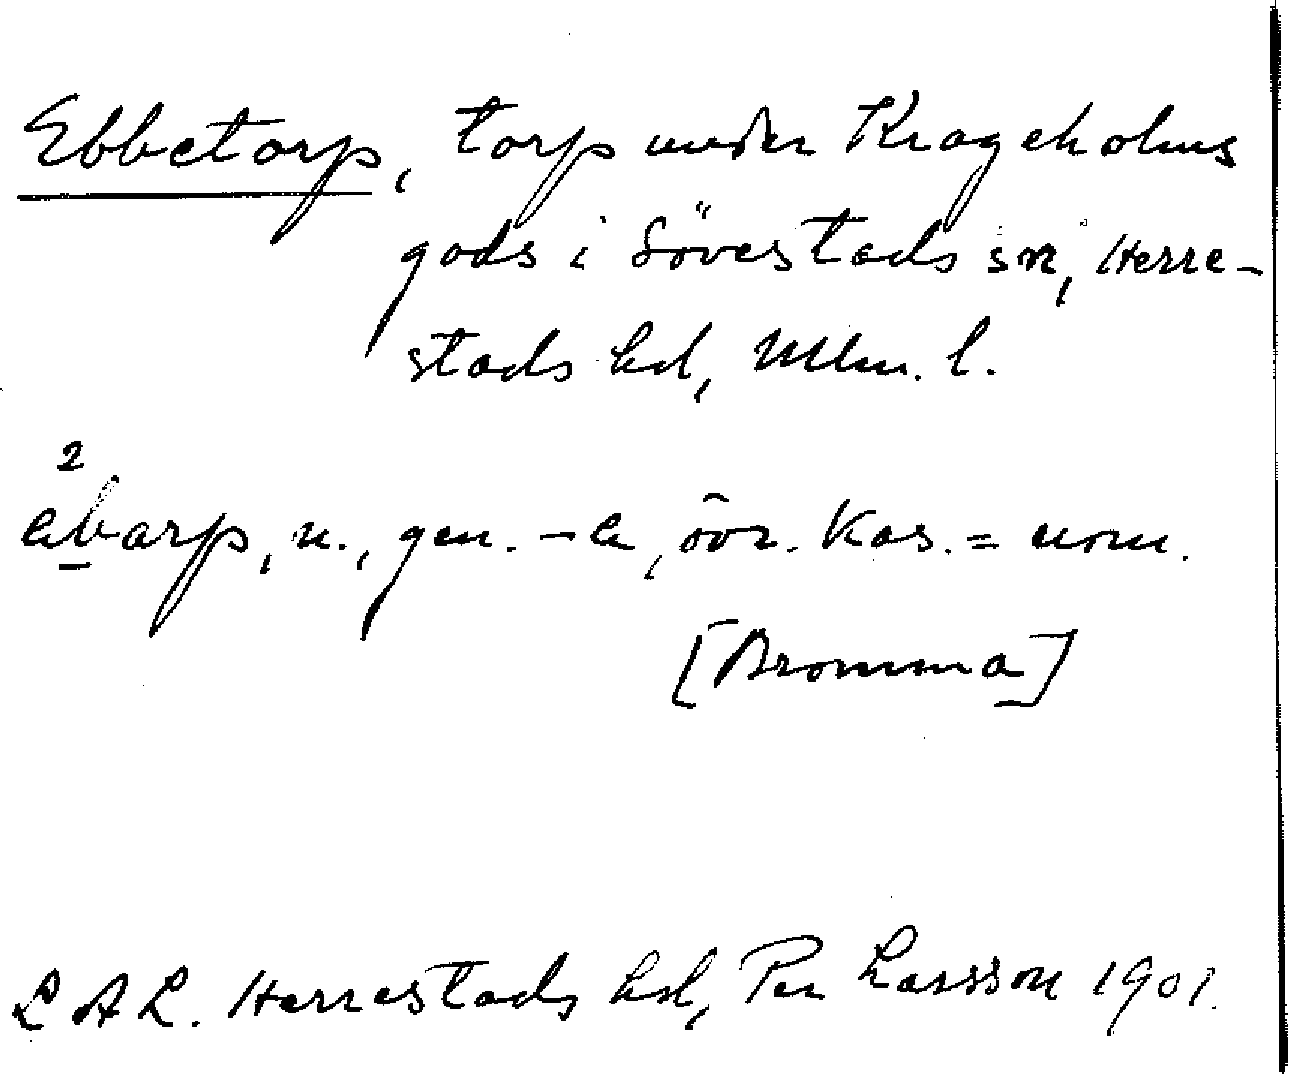 Ebbetorp, torp under Krageholms
gods i Sövestads sn, Herre-
stads hd, Mlm. l.
2
ebarp, n., gen. -a, övr. kas. = nom.
[Bromma]
L A L. Herrestads hd, Per Larsson 1901.